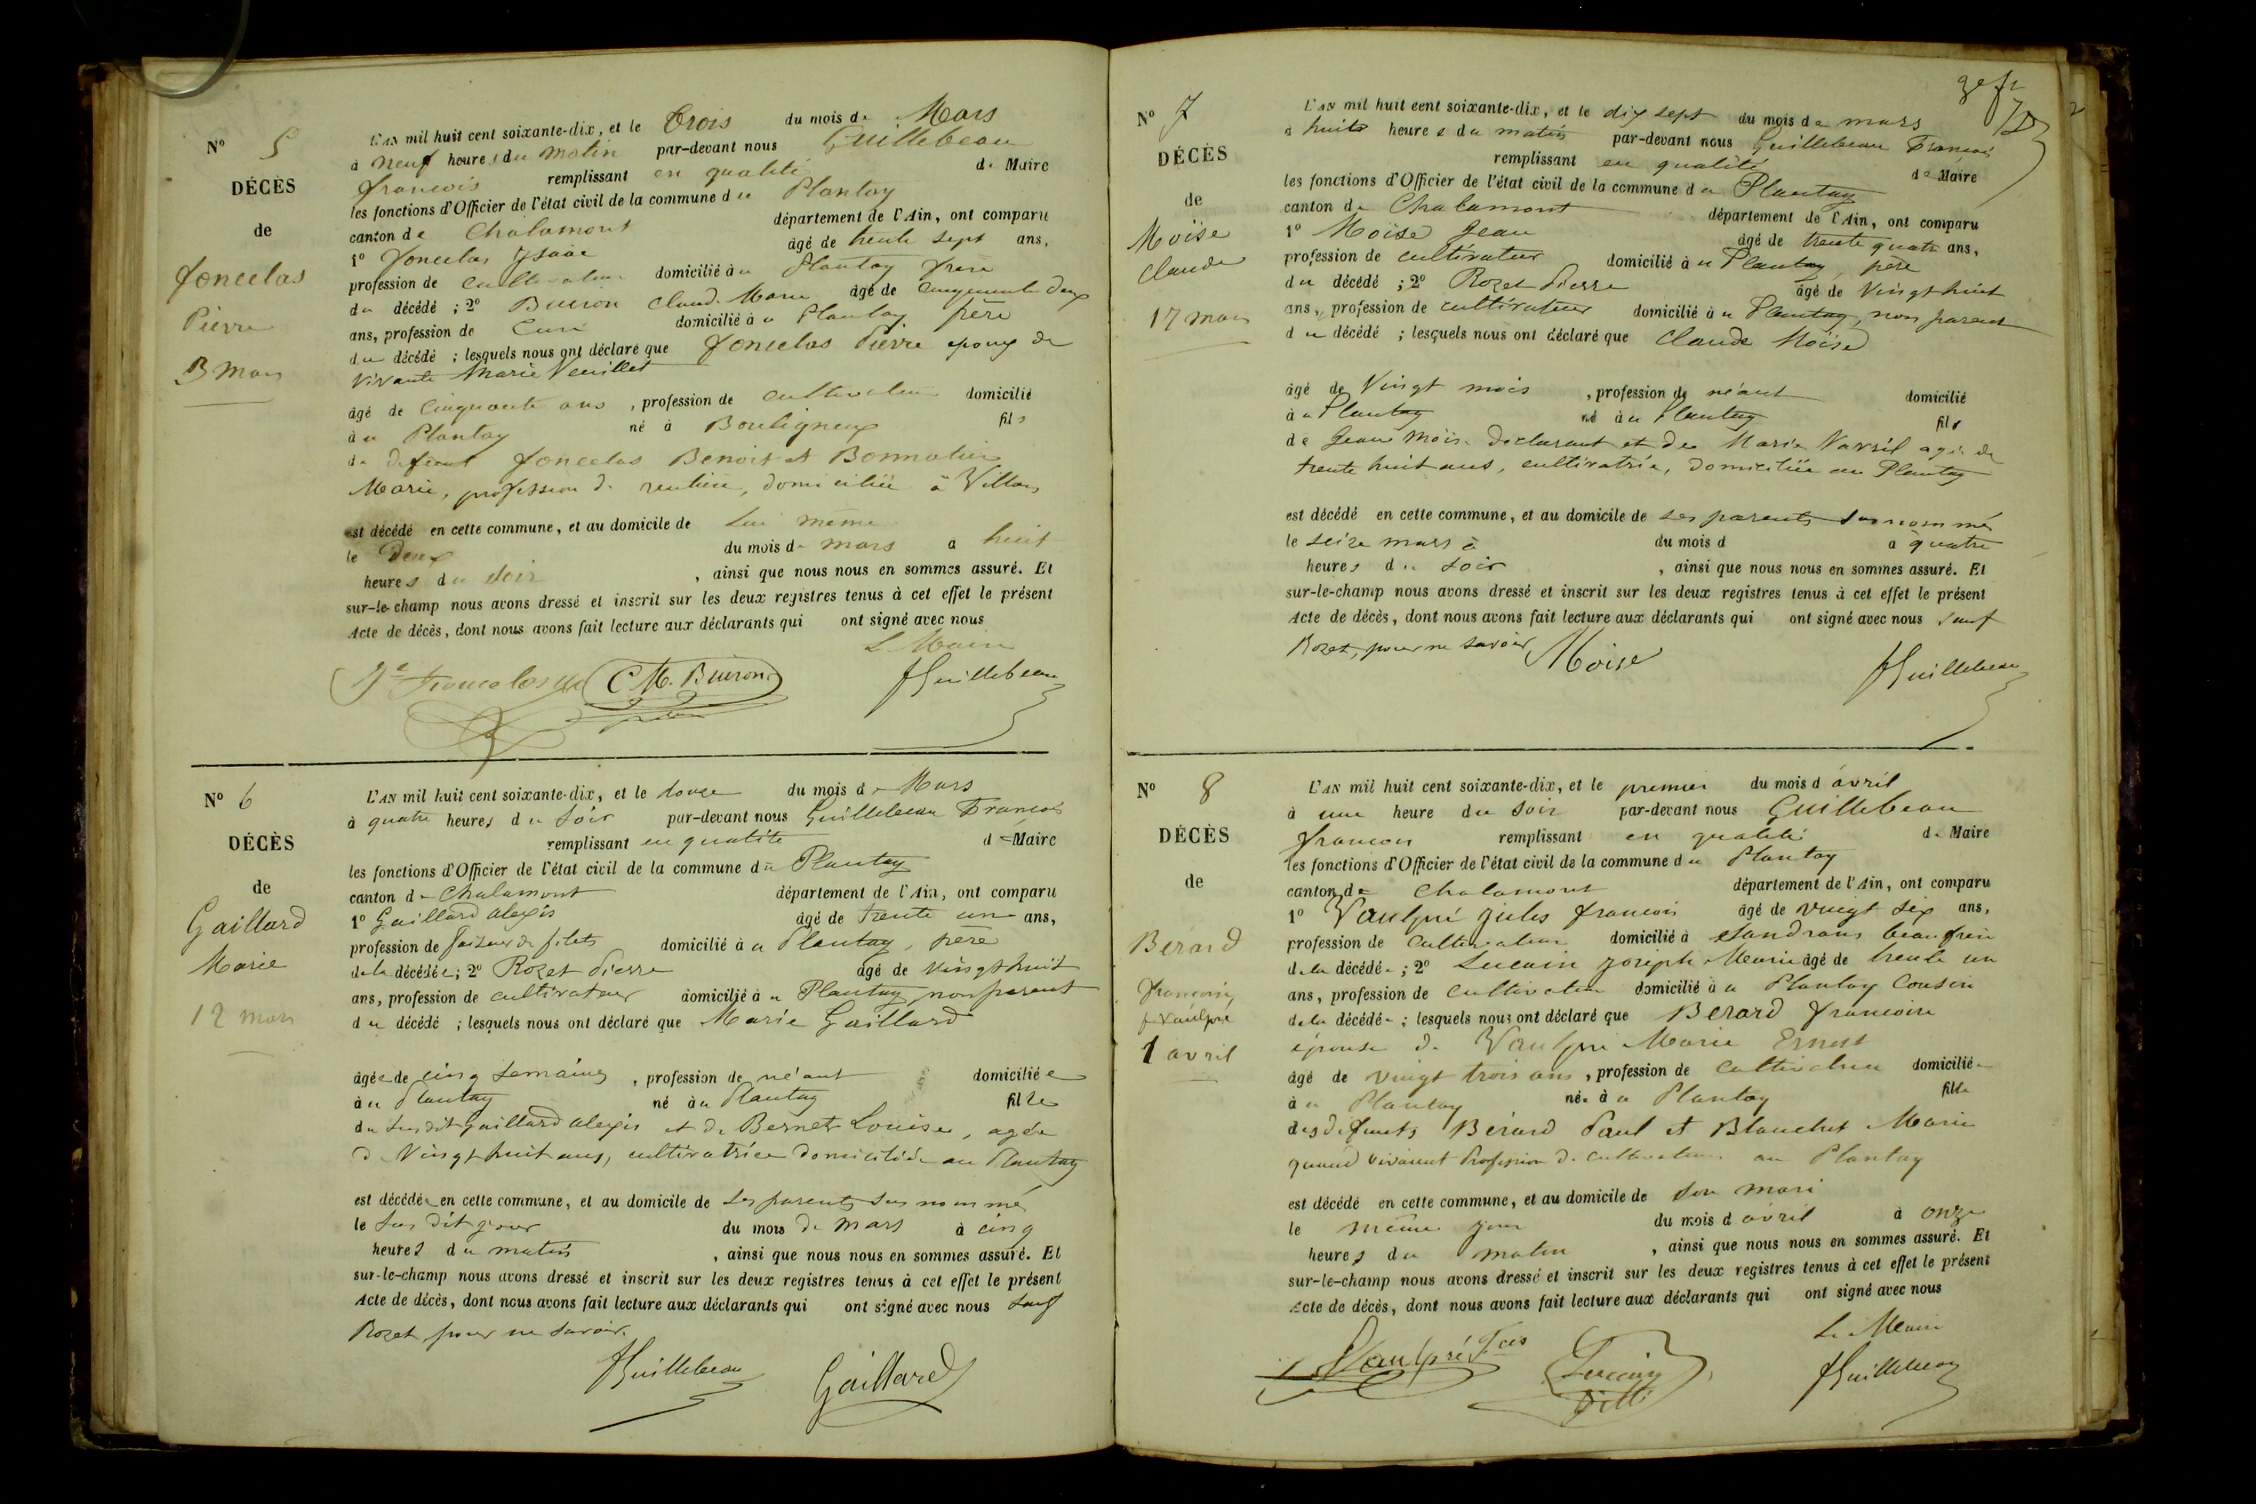 N° 5
DÉCÈS
de
Joncelas
Pierre
3 Mars
L'AN mil huit cent soixante-dix, et le trois du mois de Mars
à neuf heures du matin par-devant nous Guillebeau
françois remplissant en qualité de Maire
les fonctions d'Officier de l'état civil de la commune du Plantay
canton de Chalamont département de l'Ain, ont comparu
1° Joncelas Ysaac âgé de trente sept ans,
profession de cultivateur domicilié au Plantay frère
du décédé ; 2° Buiron Claude Marie âgé de cinquante deux
ans, profession de Curé domicilié au Plantay
du décédé ; lesquels nous ont déclaré que Joncelas Pierre epoux de
vivante Marie Veuillet
âgé de Cinquante ans , profession de cultivateur domicilié
au Plantay né à Bouligneux fils
de defunt Joncelas Benoit et Bonnatin
Marie, profession de rentière, domiciliée à Villars
est décédé en cette commune, et au domicile de Lui même
le Deux du mois de mars a huit
heures du soir , ainsi que nous nous en sommes assuré. Et
sur-le-champ nous avons dressé et inscrit sur les deux registres tenus à cet effet le présent
Acte de décès, dont nous avons fait lecture aux déclarants qui ont signé avec nous
Le Maire
C M. Buiron FGuillebeau
N° 6
DÉCÈS
de
Gaillard
Marie
12 mars
L'AN mil huit cent soixante-dix, et le douze du mois de Mars
à quatre heures du soir par-devant nous Guillebeau François
remplissant en qualité de Maire
les fonctions d'Officier de l'état civil de la commune du Plantay
canton de Chalamont département de l'Ain, ont comparu
1° Gaillard alexis âgé de trente un ans,
profession de faiseur de filets domicilié au Plantay, père
de la décédée ; 2° Rozet Pierre âgé de vingt huit
ans, profession de cultivateur domicilié au Plantay non parent
du décédé ; lesquels nous ont déclaré que Marie Gaillard
âgée de cinq semaines , profession de néant domiciliée
au Plantay né au Plantay fille
du susdit gaillard alexis et de Bernet Louise, agée
de Vingt huit ans, cultivatrice domiciliée au Plantay
est décédée en cette commune, et au domicile de ses parents sus nommé
le sus dit jour du mois de mars à cinq
heures du matin , ainsi que nous nous en sommes assuré. Et
sur-le-champ nous avons dressé et inscrit sur les deux registres tenus à cet effet le présent
Acte de décès, dont nous avons fait lecture aux déclarants qui ont signé avec nous sauf
Rozet pour ne savoir.
FGuillebeau Gaillard
N° 7
DÉCÈS
de
Moïse
Claude
17 mars
L'AN mil huit cent soixante-dix, et le dix sept du mois de mars
à huit heures du matin par-devant nous Guillebeau François
remplissant en qualité de Maire
les fonctions d'Officier de l'état civil de la commune du Plantay
canton de Chalamont département de l'Ain, ont comparu
1° Moïse Jean âgé de trente quatre ans,
profession de cultivateur domicilié au Plantay, père
du décédé ; 2° Rozet Pierre âgé de Vingt huit
ans, profession de cultivateur domicilié au Plantay, non parent
du décédé ; lesquels nous ont déclaré que Claude Moïse
âgé de Vingt mois , profession de néant domicilié
au Plantay né au Plantay fils
de Jean Moïse declarant et de Marie Navril agée de
trente huit ans, cultivatrice, domiciliée au Plantay
est décédé en cette commune, et au domicile de ses parents sus nommé
le seize mars à du mois d a quatre
heures du soir , ainsi que nous nous en sommes assuré. Et
sur-le-champ nous avons dressé et inscrit sur les deux registres tenus à cet effet le présent
Acte de décès, dont nous avons fait lecture aux déclarants qui ont signé avec nous sauf
Rozet, pour ne savoir Moise
FGuillebeau
N° 8
DÉCÈS
de
Bérard
Françoise
f Vaulpré
1 avril
L'AN mil huit cent soixante-dix, et le premier du mois d'avril
à une heure du soir par-devant nous Guillebeau
françois remplissant en qualité de Maire
les fonctions d'Officier de l'état civil de la commune du Plantay
canton de Chalamont département de l'Ain, ont comparu
1° Vaulpré Jules françois âgé de vingt six ans,
profession de Cultivateur domicilié à Sandrans beau frère
de la décédée ; 2° Lucain Joseph Marie âgé de trente un
ans, profession de Cultivateur domicilié au Plantay Cousin
de la décédée ; lesquels nous ont déclaré que Berard francoise
épouse de Vaulpré Marie Ernest
âgé de vingt trois ans , profession de Cultivateur domiciliée
au Plantay née au Plantay fille
des defunts Bérard Paul et Blanchet Marie
quand vivaient Profession de cultivateurs au Plantay
est décédé en cette commune, et au domicile de son mari
le même jour du mois d'avril à onze
heures du matin , ainsi que nous nous en sommes assuré. Et
sur-le-champ nous avons dressé et inscrit sur les deux registres tenus à cet effet le présent
Acte de décès, dont nous avons fait lecture aux déclarants qui ont signé avec nous
Le Maire
Vaulpré Fcois Lucain FGuillebeau